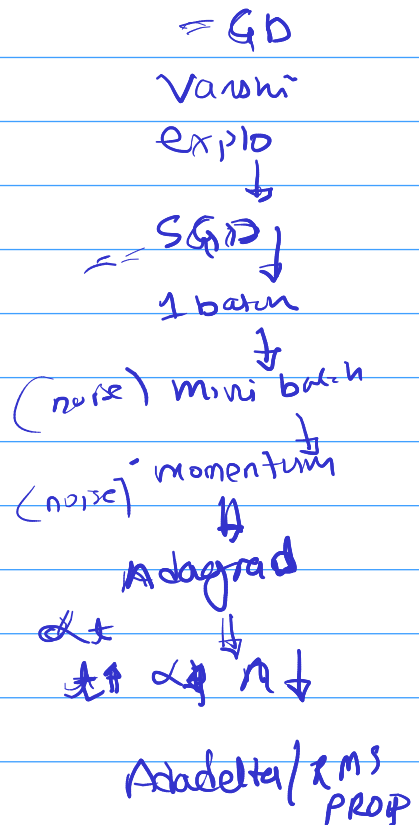 = GD
Vanshi
explo
↓
SGD ↓
==
1 batch
↓
(noise) mini batch
↓
(noise) momentum
⇓
Adagrad
αt ⇓
t↑ α η ↓
Adadelta / RMS
PROP